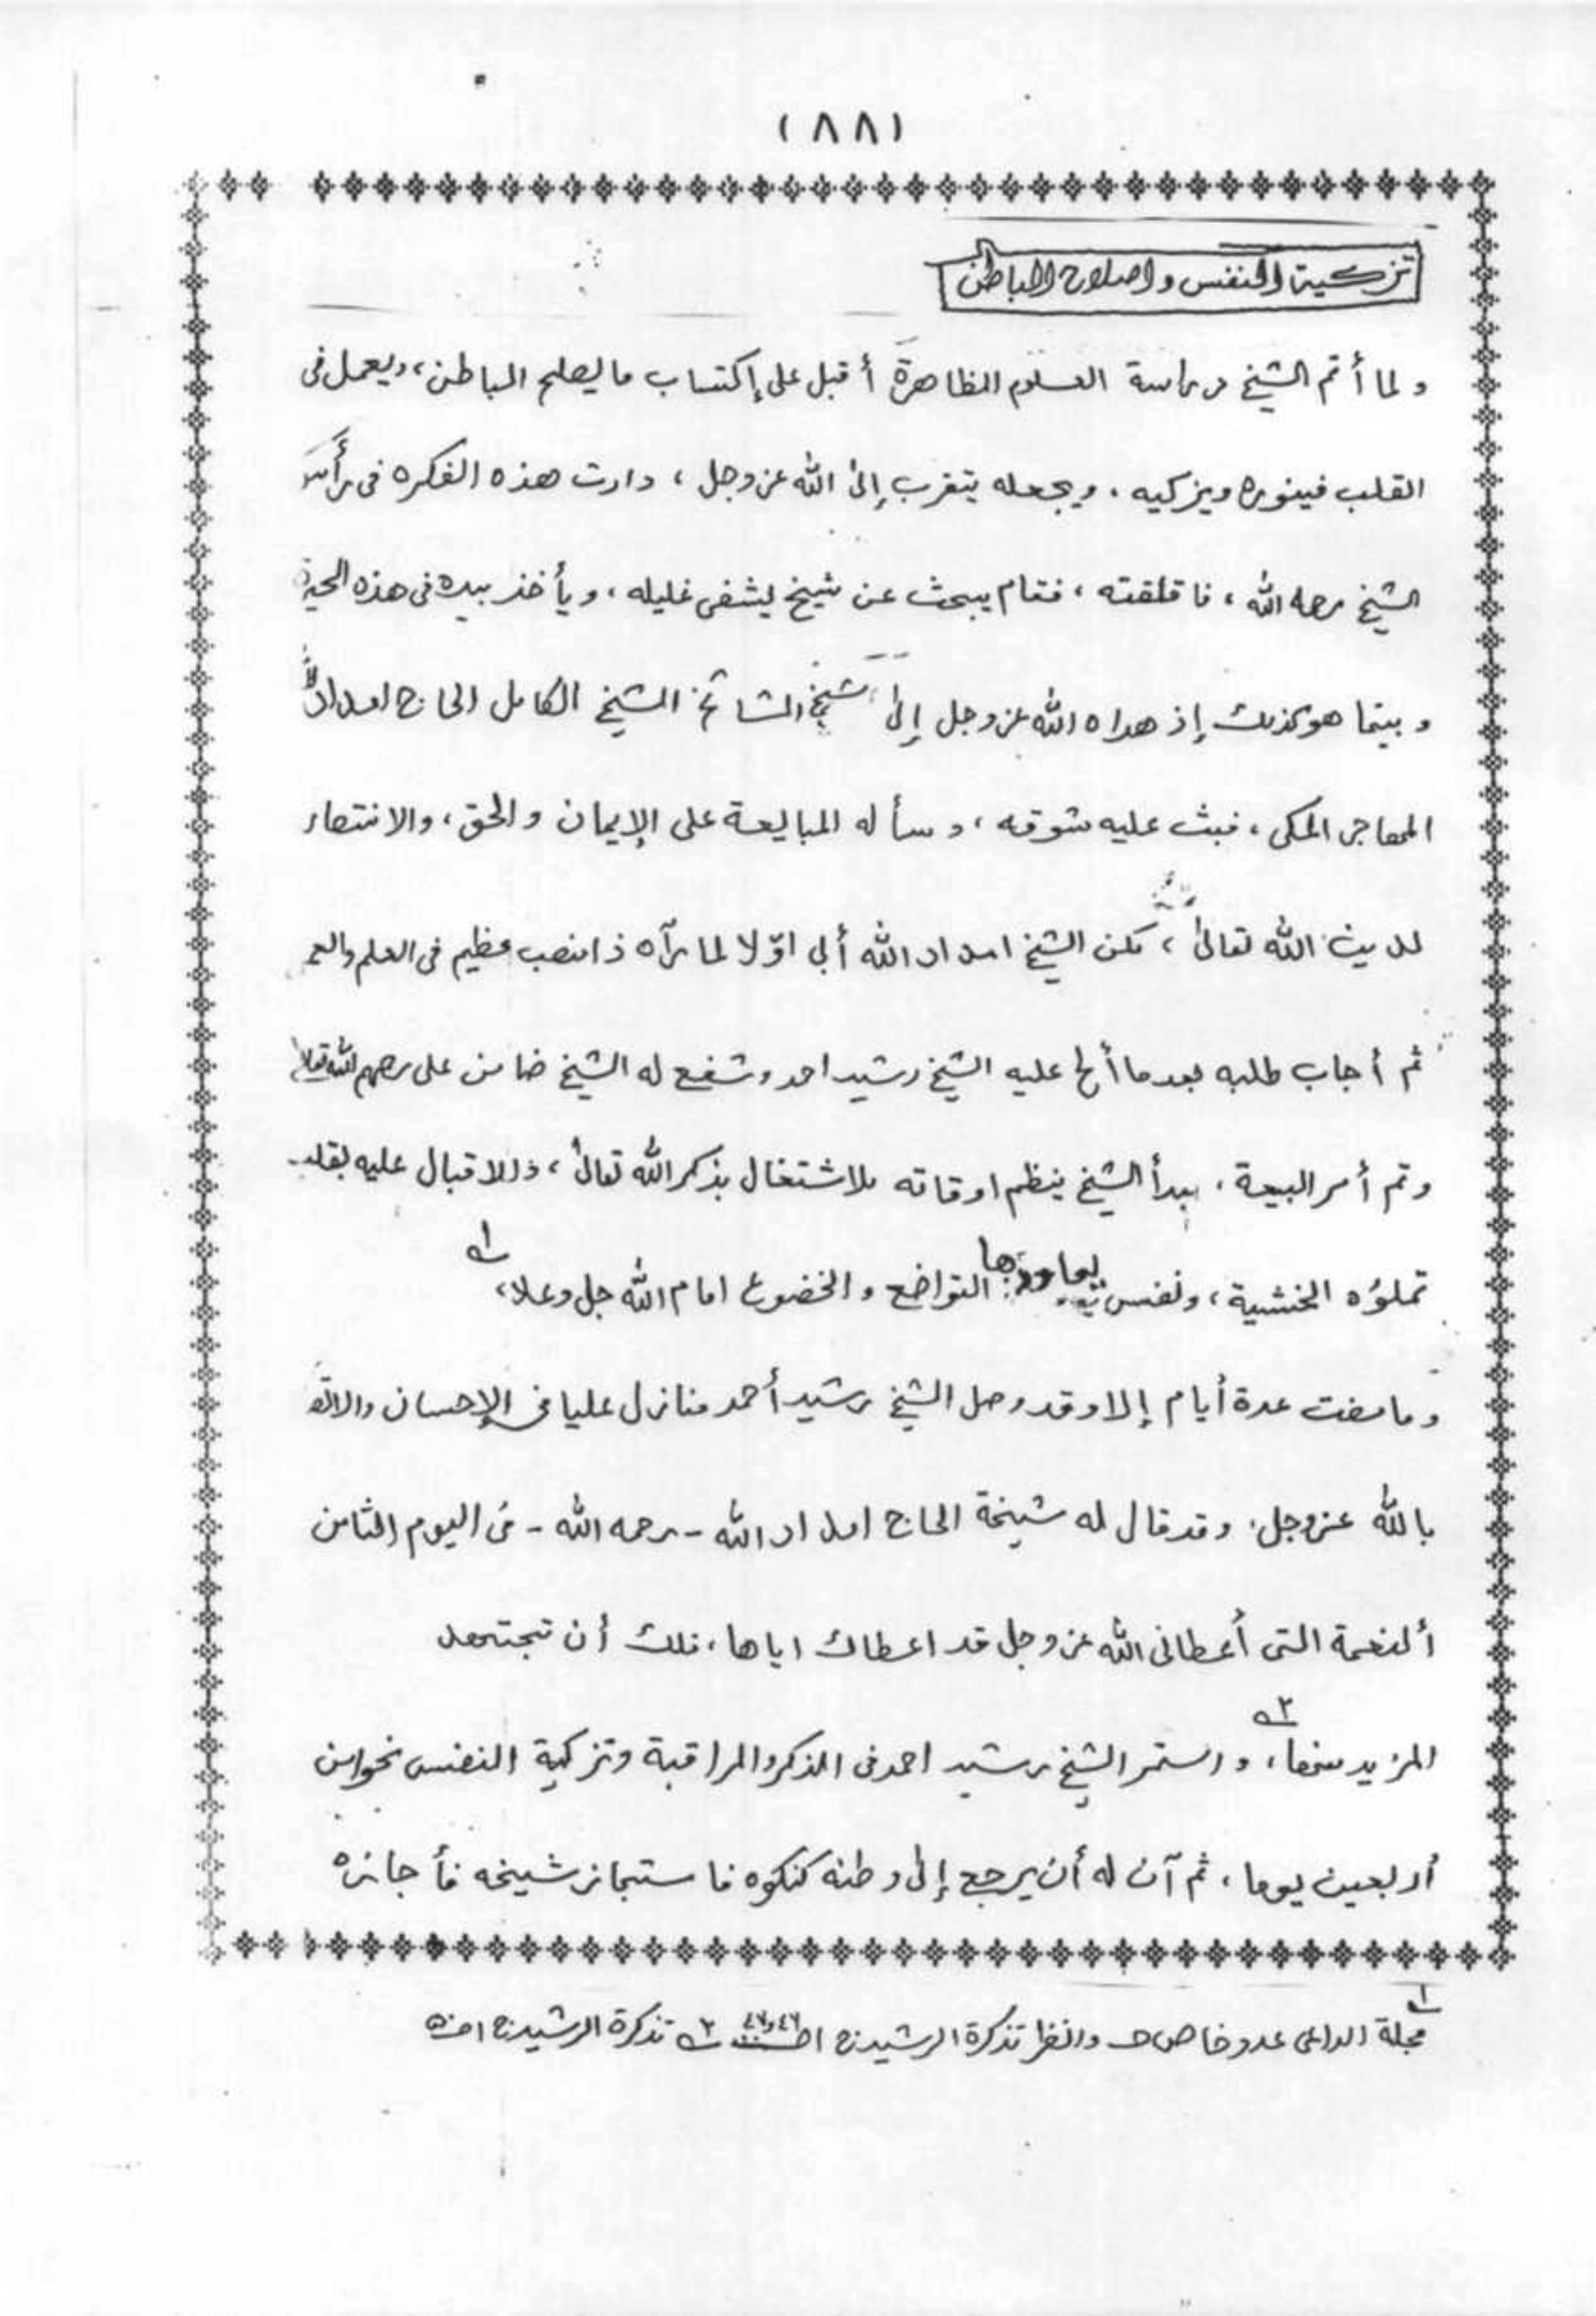 (٨٨)
تزكية النفس واصلاح الباطن
ولما أتم الشيخ دراسة العلوم الظاهرة أقبل على إكتساب ما يصلح الباطن، ويعمل فى
القلب فينوره ويزكيه، ويجعله يتقرب إلى الله عزوجل، دارت هذه الفكره فى رأس
الشيخ رحمه الله، فاقلقته، فقام يبحث عن شيخ يشفى غليله، ويأخذ بيده فى هذه
وبينما هو كذلك إذ هداه الله عزوجل إلى شيخ المشائخ الشيخ الكامل الحاج امداد الله
المهاجر المكى، فبث عليه شوقه، وسأله المبايعة على الإيمان والحق، والانتصار
لدين الله تعالى، لكن الشيخ امداد الله أبى اوّلا لما رآه ذا منصب عظيم فى العلم
ثم أجاب طلبه بعد ما ألح عليه الشيخ رشيد احمد وشفع له الشيخ ضامن على رحمهم الله تعالى
وتم أمر البيعة، بدأ الشيخ ينظم اوقاته للاشتغال بذكر الله تعالى، والاقبال عليه بقلب
تملؤه الخشية، ونفس التواضع والخضوع امام الله جل وعلا، ١؎
وما مضت عدة أيام إلا وقد وصل الشيخ رشيد أحمد منازل عليا فى الإحسان
بالله عزوجل. وقد قال له شيخة الحاج امداد الله - رحمه الله - فى اليوم الثامن
ألنعمة التى أعطانى الله عزوجل قد اعطاك اياها، فلك أن تجتهد
المزيد منها، ٢؎ واستمر الشيخ رشيد احمد فى الذكر والمراقبة وتزكية النفس نحوا من
أربعين يوما، ثم آن له أن يرجع إلى وطنه كنكوه فاستجاز شيخه فأجازه
١؎ مجلة الداعى عدد خاص وانظر تذكرة الرشيد ج ١ ص ٤٦ و٤٧ ٢؎ تذكرة الرشيد ج ١